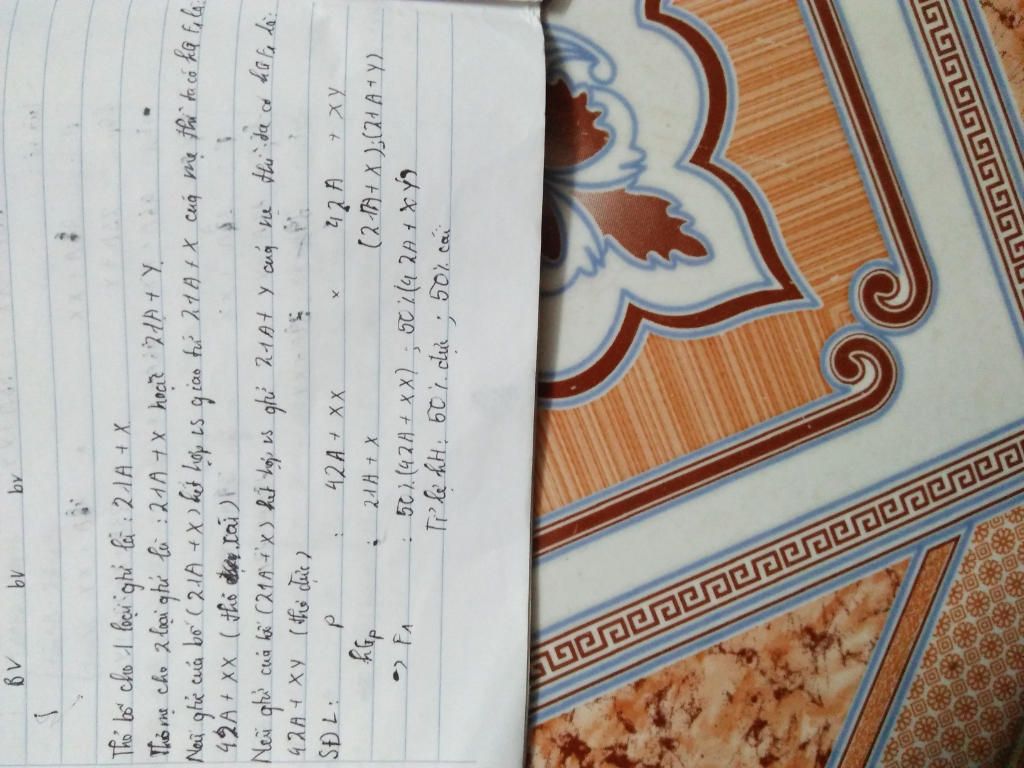 BV bV bv
Thỏ bố cho 1 loại gtử là : 21A + X
Thỏ mẹ cho 2 loại gtử là : 21A + X hoặc 21A + Y.
Nếu gtử của bố (21A + X) kết hợp vs giao tử 21A + X của mẹ thì ta có htử F1 là:
42A + XX (thỏ cái)
Nếu gtử của bố (21A + X) kết hợp vs gtử 21A + Y của mẹ thì ta có htử F1 là:
42A + XY (thỏ đực)
SĐL: P : 42A + XX × 42A + XY
Gp : 21A + X (21A + X) ; (21A + Y)
-> F1 : 50% (42A + XX) ; 50% (42A + XY)
Tỉ lệ KH: 50% đực ; 50% cái